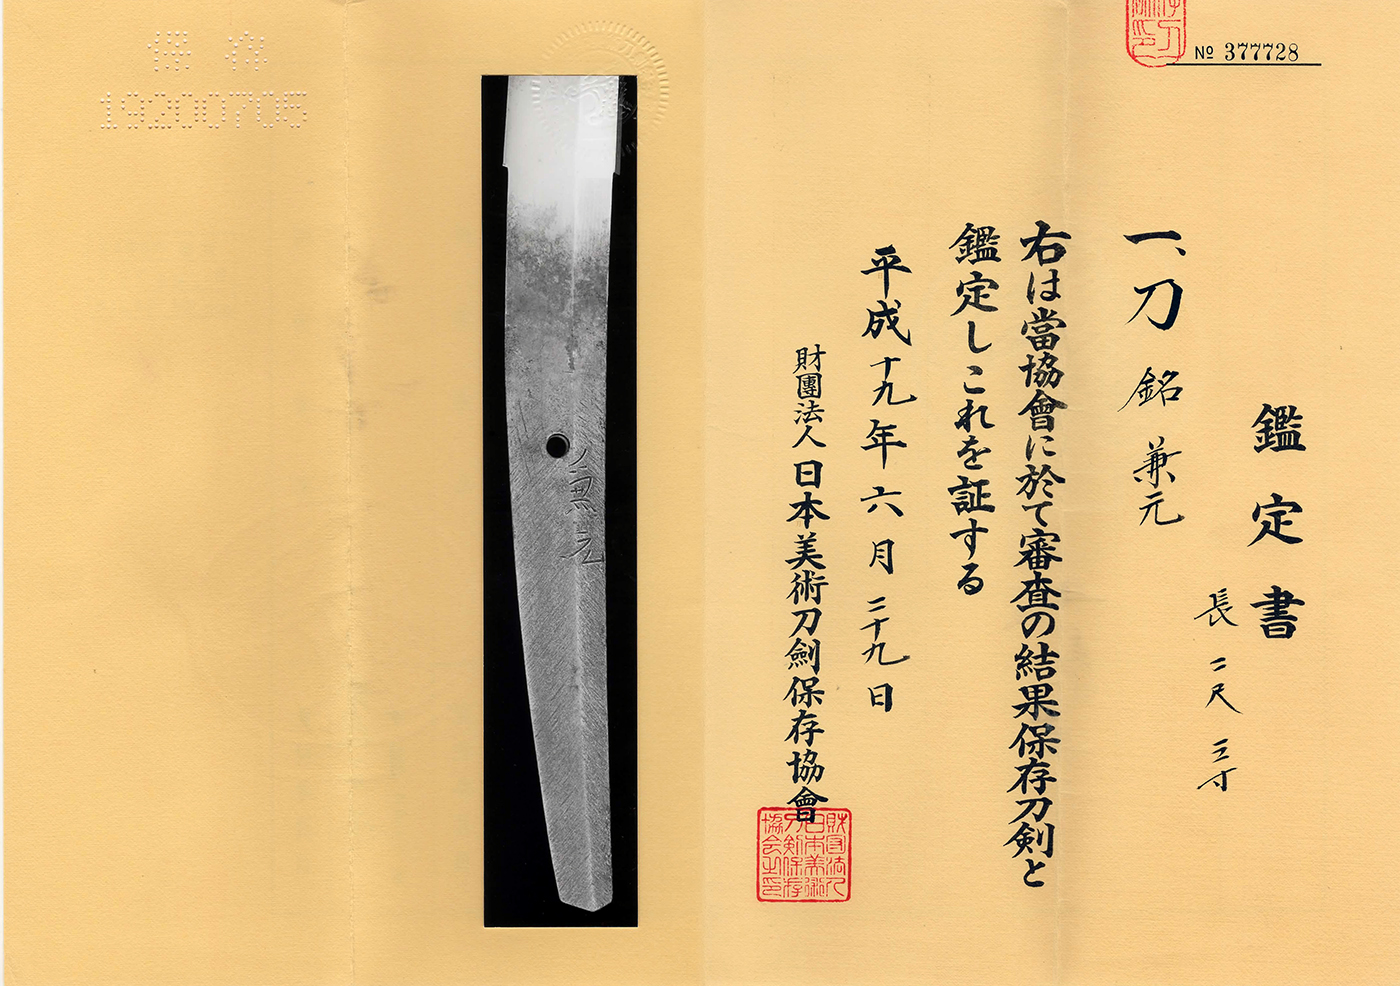 № 377728
鑑定書
一、刀 銘 兼元
長 二尺 三寸
右は當協會に於て審査の結果保存刀剣と
鑑定しこれを証する
平成十九年六月二十九日
財團法人 日本美術刀劍保存協會
財団法人
日本美術
刀剣保存
協会之印
兼元
保存
19200705